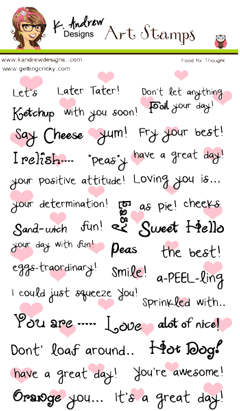 K. Andrew
Designs
Art Stamps
www.kandrewdesigns.com
Food for Thought
www.gettingcricky.com
Let's Later Tater! Don't let anything
Ketchup with you soon! Foul your day!
Say Cheese yum! Fry your best!
I relish.... 'peas'y have a great day!
your positive attitude! Loving you is...
your determination! Easy as pie! cheeks
Sand-wich fun! Sweet Hello
your day with fun! Peas the best!
eggs-traordinary! Smile! a-PEEL-ling
I could just squeeze you! Sprinkled with..
You are ----- Love alot of nice!
Dont' loaf around.. Hot Dog!
have a great day! You're awesome!
Orange you... It's a great day!